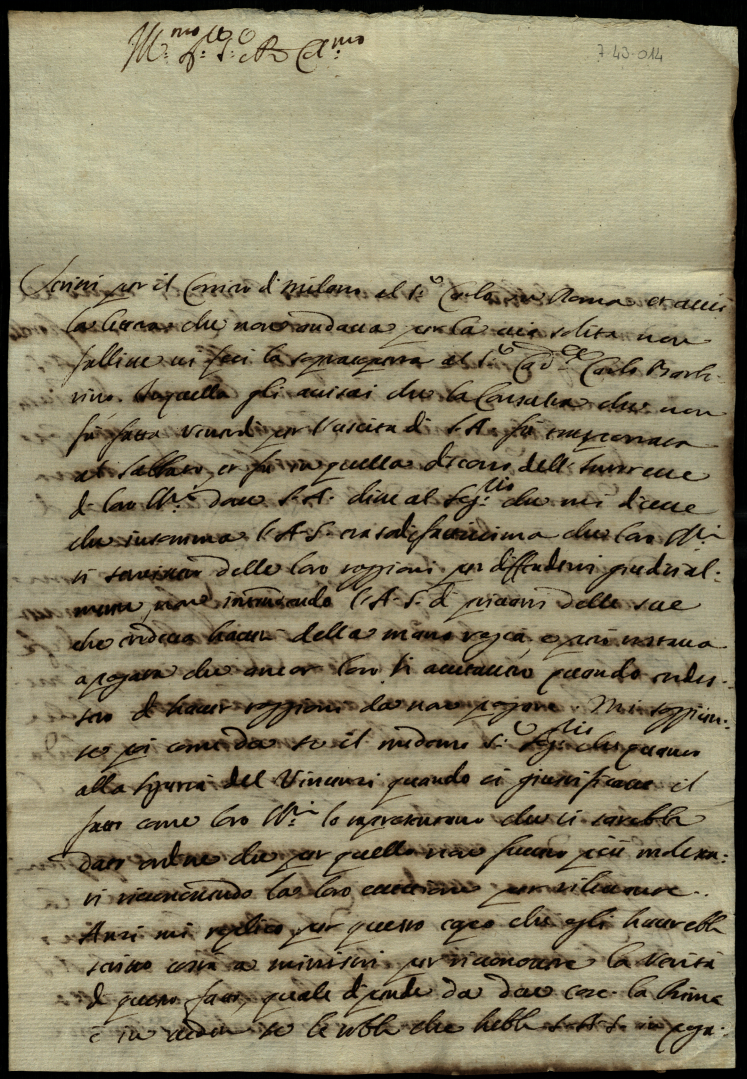 7-43-014
Scrissi per il Corriero di Milano al S.r Carlo in Roma et acciò
la lettera che non andava per la via solita non
fallisse vi feci la sopracoperta al S.r Card.le Carlo Barbe-
rino. In quella gli avisai che la Consulta che non
fù fatta venerdi per l'uscita di S.A. fù trasportata
al sabbato, et fù in quella discorso dell'interesse
di loro SS.ri dove S.A. disse al Seg.rio che mi dicesse
che insomma l'A.S. era sodisfattissima che loro SS.ri
si servissero delle loro raggioni per diffendersi giudicial-
mente, non intendendo l'A.S. di privarsi delle sue
che credeva havere della mano regia, e però
a pagare che ancor loro si quando credes-
sero di haver raggioni da non pagare. Mi soggiun-
se poi come da se il medemo S.r Seg.rio che quanto
alla sigurtà del Vincenzi quando ci giustificasse il
fatto come loro SS.ri lo rapresentano che si sarebbe
dato ordine che per quello non fussero più molesta-
ti riconoscendo la loro cautione per
Anzi mi replicò per questo capo che egli haverebbe
scritto costì a ministri per riconoscere la verità
di questo fatto, quale dipende da due cose. la prima
è in veder se le robbe che hebbe S.A.S. in paga-